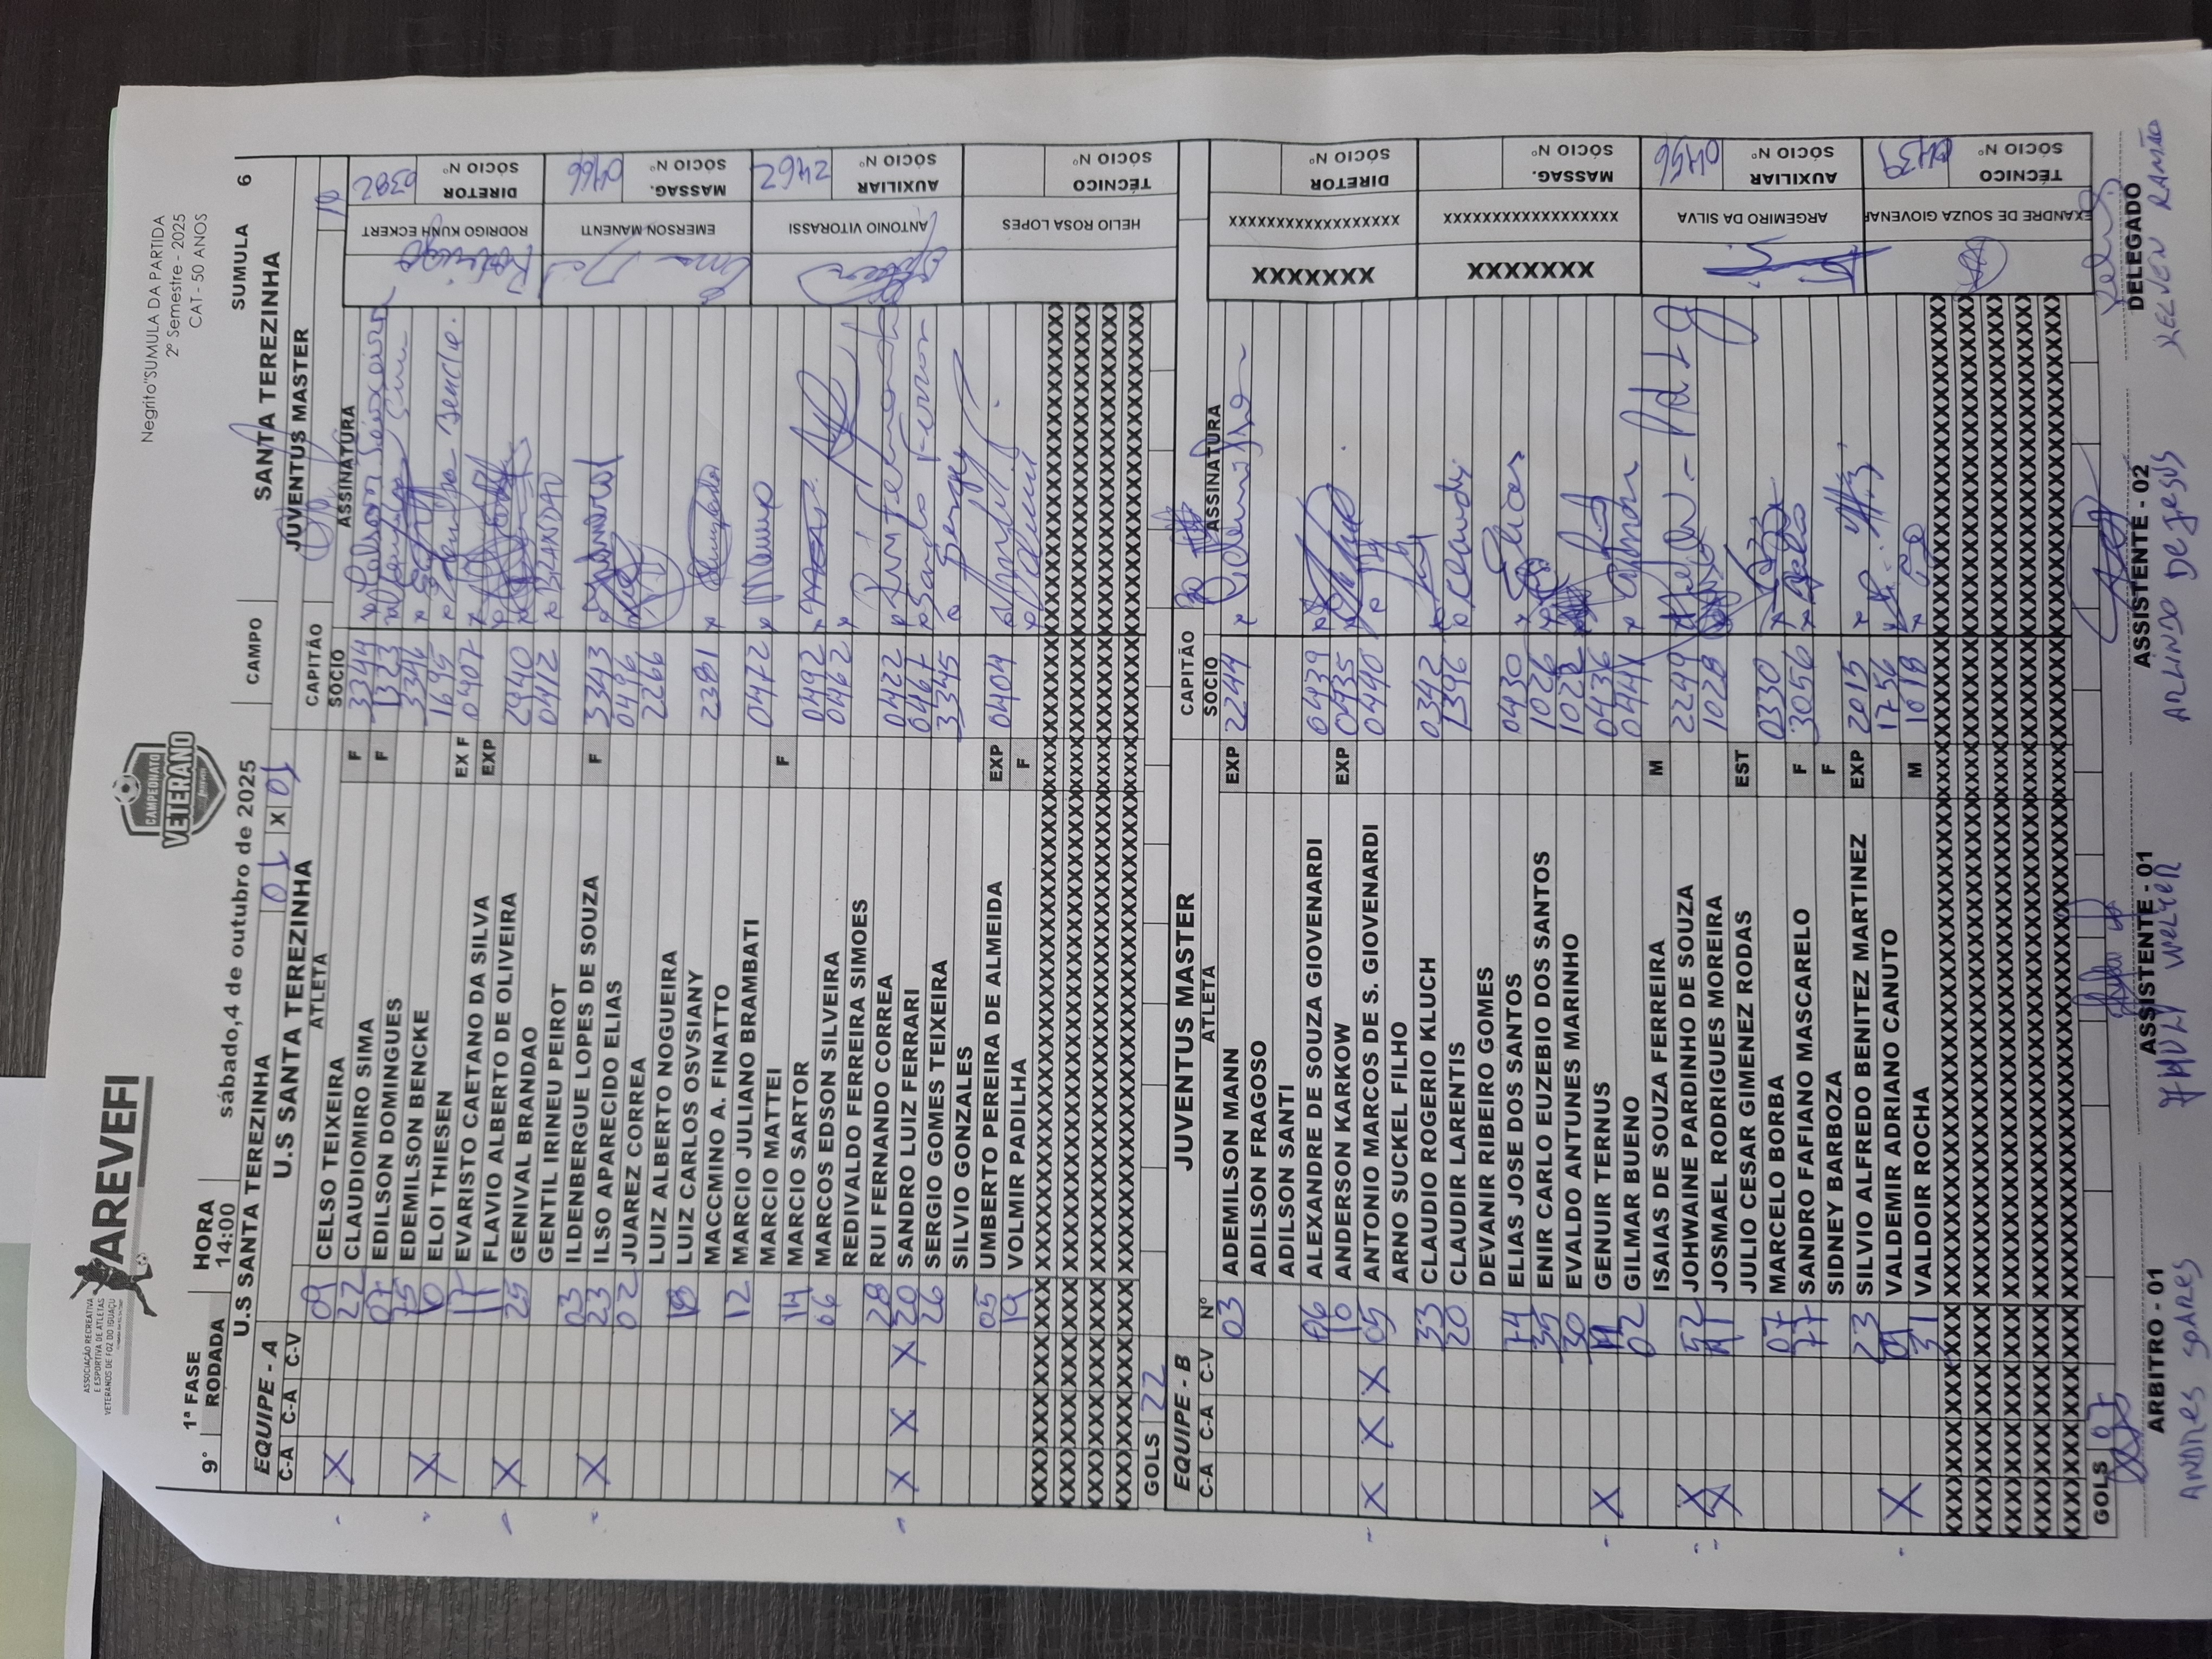 ASSOCIAÇÃO RECREATIVA
E ESPORTIVA DE ATLETAS
VETERANOS DE FOZ DO IGUAÇU
AREVEFI
CAMPEONATO
VETERANO
Negrito"SUMULA DA PARTIDA
2º Semestre - 2025
CAT - 50 ANOS
9° 1ª FASE HORA sábado, 4 de outubro de 2025 CAMPO SUMULA 6
RODADA 14:00 SANTA TEREZINHA
U.S SANTA TEREZINHA 01 X 01 JUVENTUS MASTER
EQUIPE - A U.S SANTA TEREZINHA CAPITÃO 10
C-A C-A C-V ATLETA SOCIO ASSINATURA
X 09 CELSO TEIXEIRA F 3344
22 CLAUDIOMIRO SIMA F 1323
07 EDILSON DOMINGUES 3346
X 15 EDEMILSON BENCKE 1695
10 ELOI THIESEN EX F 0407
17 EVARISTO CAETANO DA SILVA EXP
X 11 FLAVIO ALBERTO DE OLIVEIRA 2940
25 GENIVAL BRANDAO 0412 BRANDAO
GENTIL IRINEU PEIROT
X 03 ILDENBERGUE LOPES DE SOUZA F 3343
23 ILSO APARECIDO ELIAS 0496
02 JUAREZ CORREA 2266
LUIZ ALBERTO NOGUEIRA
18 LUIZ CARLOS OSVSIANY 2381
MACCMINO A. FINATTO
12 MARCIO JULIANO BRAMBATI 0472
MARCIO MATTEI F
14 MARCIO SARTOR 0492
06 MARCOS EDSON SILVEIRA 0462
REDIVALDO FERREIRA SIMOES
28 RUI FERNANDO CORREA 0422
X X X 20 SANDRO LUIZ FERRARI 0467
26 SERGIO GOMES TEIXEIRA 3345
SILVIO GONZALES
05 UMBERTO PEREIRA DE ALMEIDA EXP 0404
19 VOLMIR PADILHA F
GOLS 22
RODRIGO KUNH ECKERT DIRETOR SÓCIO Nº 0382
EMERSON MANENTI MASSAG. SÓCIO Nº 0466
ANTONIO VITORASSI AUXILIAR SÓCIO Nº 2462
HELIO ROSA LOPES TÉCNICO SÓCIO Nº
EQUIPE - B JUVENTUS MASTER CAPITÃO
C-A C-A C-V Nº ATLETA SOCIO ASSINATURA
03 ADEMILSON MANN EXP 2244
ADILSON FRAGOSO
ADILSON SANTI
06 ALEXANDRE DE SOUZA GIOVENARDI 0439
10 ANDERSON KARKOW EXP 0435
X X X 05 ANTONIO MARCOS DE S. GIOVENARDI 0440
ARNO SUCKEL FILHO
33 CLAUDIO ROGERIO KLUCH 0342
20 CLAUDIR LARENTIS 1396
DEVANIR RIBEIRO GOMES
74 ELIAS JOSE DOS SANTOS 0430 Elias
35 ENIR CARLO EUZEBIO DOS SANTOS 1026
30 EVALDO ANTUNES MARINHO 1022
X GENUIR TERNUS 0436
02 GILMAR BUENO 0441
ISAIAS DE SOUZA FERREIRA M
X 52 JOHWAINE PARDINHO DE SOUZA 2249
X JOSMAEL RODRIGUES MOREIRA 1028
JULIO CESAR GIMENEZ RODAS EST
07 MARCELO BORBA 0330
77 SANDRO FAFIANO MASCARELO F 3056
SIDNEY BARBOZA F
23 SILVIO ALFREDO BENITEZ MARTINEZ EXP 2015
X VALDEMIR ADRIANO CANUTO 1756
31 VALDOIR ROCHA M 1018
GOLS 07
XXXXXXX XXXXXXXXXXXXXXXXXX DIRETOR SÓCIO Nº
XXXXXXX XXXXXXXXXXXXXXXXXX MASSAG. SÓCIO Nº
ARGEMIRO DA SILVA AUXILIAR SÓCIO Nº 0456
EXANDRE DE SOUZA GIOVENAR TÉCNICO SÓCIO Nº 0439
ARBITRO - 01 ASSISTENTE - 01 ASSISTENTE - 02 DELEGADO
ANDRES SOARES WELTER ARLINDO DE JESUS KELVEN RAMÃO